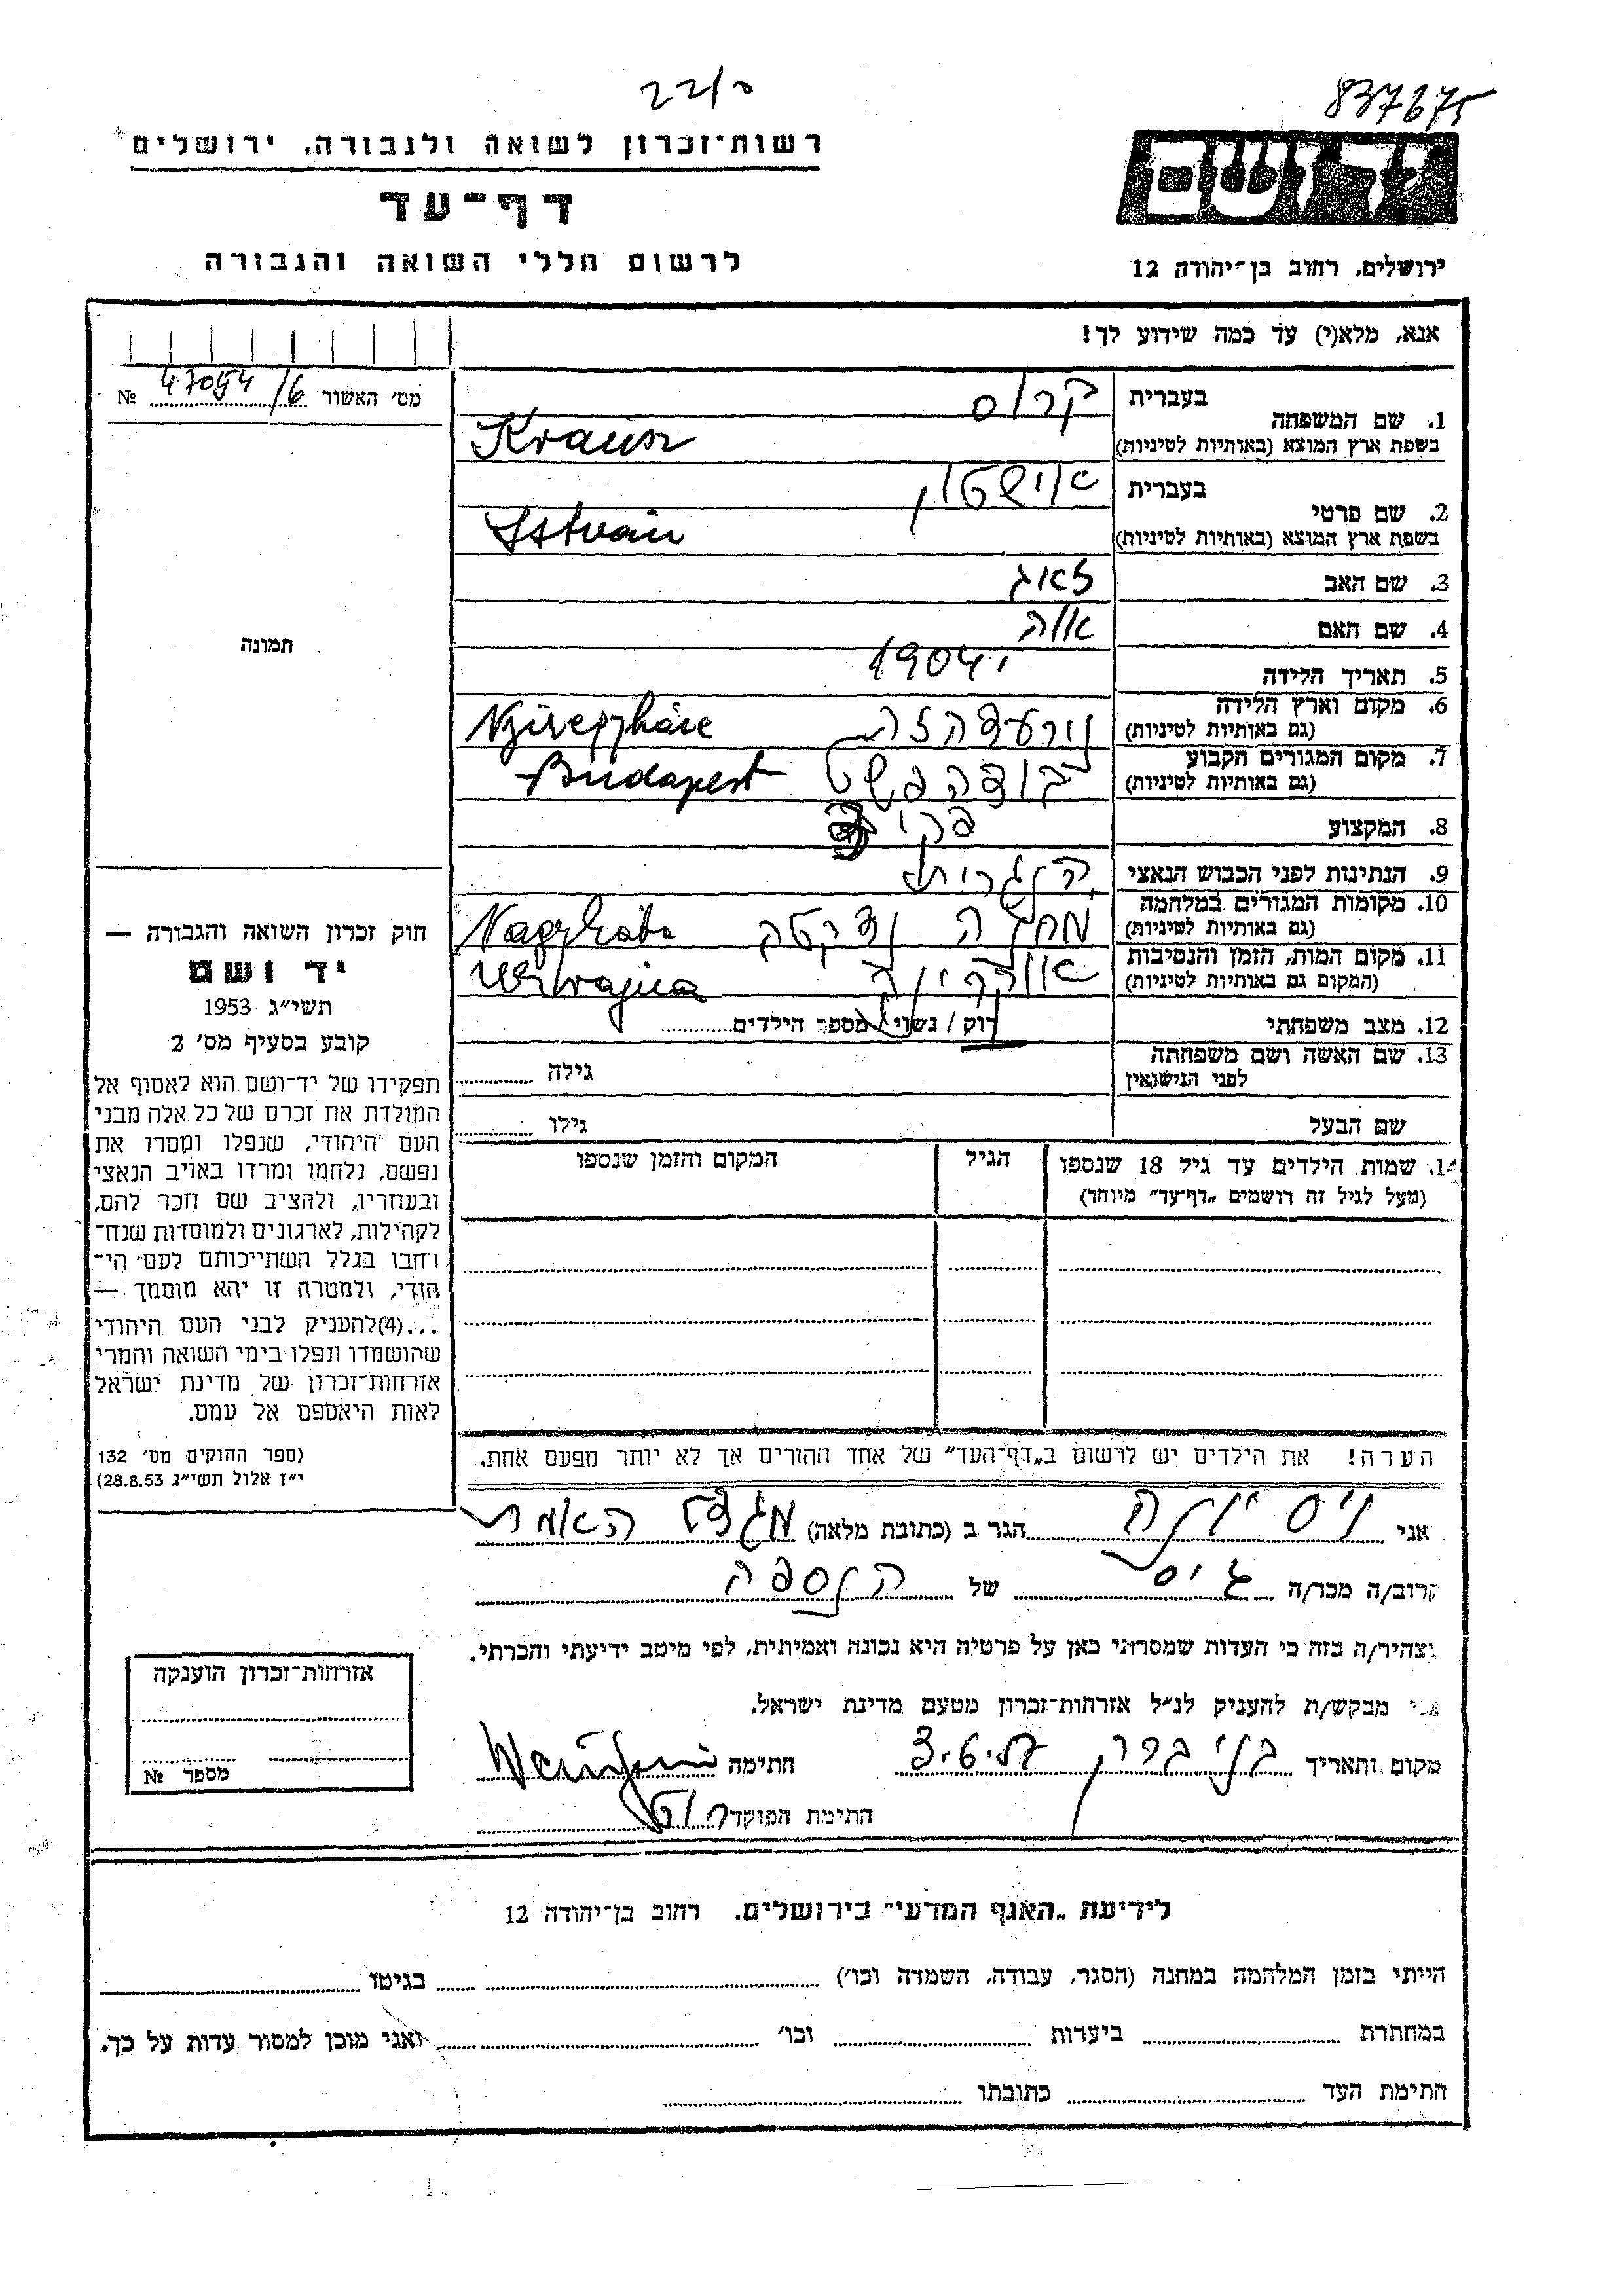 22/0
837675
רשות־זכרון לשואה ולגבורה, ירושלים
דף־עד
לרשום חללי השואה והגבורה
יד ושם
ירושלים, רחוב בן־יהודה 12
אנא, מלא(י) עד כמה שידוע לך!
מס׳ האשור 47054/6 №
תמונה
1. שם המשפחה
בעברית קראוס
בשפת ארץ המוצא (באותיות לטיניות) Krausz
2. שם פרטי
בעברית
בשפת ארץ המוצא (באותיות לטיניות) István
3. שם האב
4. שם האם
5. תאריך הלידה 1904
6. מקום וארץ הלידה
(גם באותיות לטיניות)
7. מקום המגורים הקבוע
(גם באותיות לטיניות) בודהפשט Budapest
8. המקצוע פקיד
9. הנתינות לפני הכבוש הנאצי הונגרית
10. מקומות המגורים במלחמה
(גם באותיות לטיניות) Nagykáta
11. מקום המות, הזמן והנסיבות
(המקום גם באותיות לטיניות) אוקריינה Ukrajna
12. מצב משפחתי רוק / נשוי / מספר הילדים
13. שם האשה ושם משפחתה
לפני הנישואין גילה
שם הבעל גילו
14. שמות הילדים עד גיל 18 שנספו
(מעל לגיל זה רושמים „דף־עד״ מיוחד)
הגיל
המקום והזמן שנספו
הערה! את הילדים יש לרשום ב„דף־העד״ של אחד ההורים אך לא יותר מפעם אחת.
חוק זכרון השואה והגבורה —
יד ושם
תשי״ג 1953
קובע בסעיף מס׳ 2
תפקידו של יד־ושם הוא לאסוף אל
המולדת את זכרם של כל אלה מבני
העם היהודי, שנפלו ומסרו את
נפשם, נלחמו ומרדו באויב הנאצי
ובעוזריו, ולהציב שם וזכר להם,
לקהילות, לארגונים ולמוסדות שנח־
רבו בגלל השתייכותם לעם הי־
הודי, ולמטרה זו יהא מוסמך —
...(4)להעניק לבני העם היהודי
שהושמדו ונפלו בימי השואה והמרי
אזרחות־זכרון של מדינת ישראל
לאות היאספם אל עמם.
(ספר החוקים מס׳ 132
י״ז אלול תשי״ג 28.8.53)
אני הגר ב (כתובת מלאה)
קרוב/ה מכר/ה גיס של הנספה
מצהיר/ה בזה כי העדות שמסרתי כאן על פרטיה היא נכונה ואמיתית, לפי מיטב ידיעתי והכרתי.
אני מבקש/ת להעניק לנ״ל אזרחות־זכרון מטעם מדינת ישראל.
מקום ותאריך בני ברק חתימה
חתימת הפוקד
אזרחות־זכרון הוענקה
מספר №
לידיעת „האגף המדעי״ בירושלים, רחוב בן־יהודה 12
הייתי בזמן המלחמה במחנה (הסגר, עבודה, השמדה וכו׳) בגיטו
במחתרת ביערות וכו׳ ואני מוכן למסור עדות על כך.
חתימת העד כתובתו